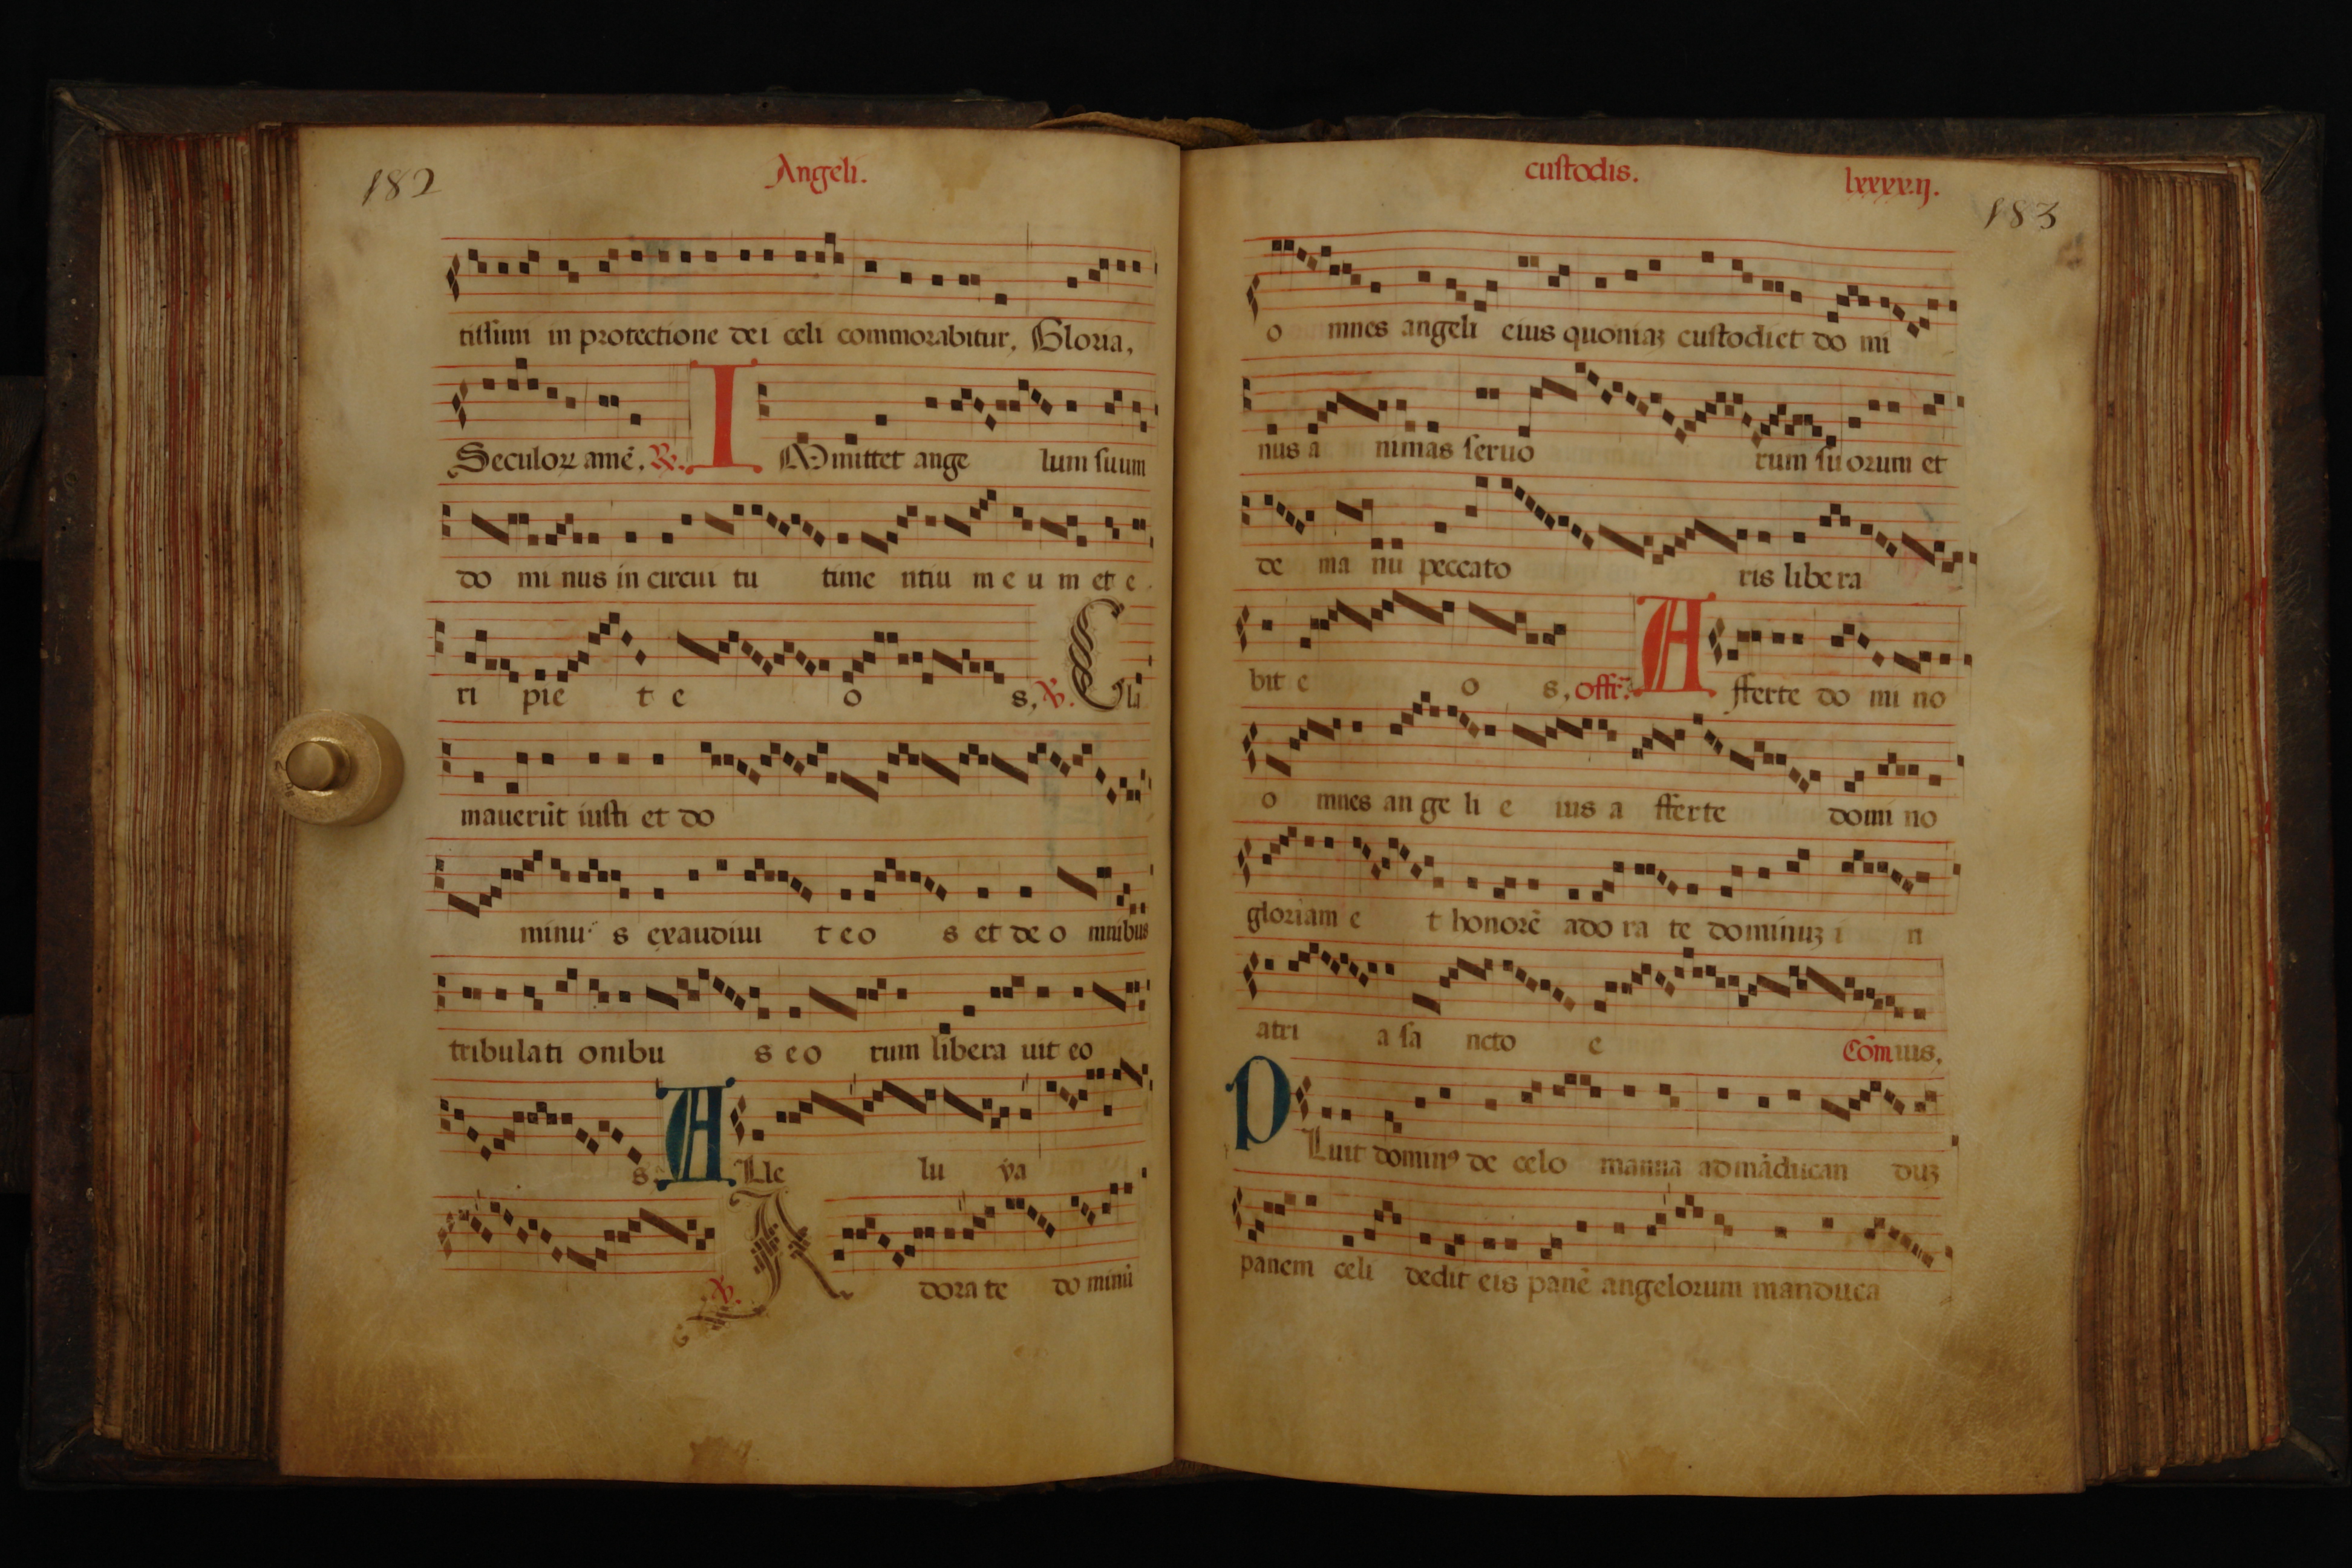 182
Angeli.
tissimi in protectione dei celi commorabitur, Gloria,
Seculoꝝ amē, ℟. I Mmittet ange lum suum
do mi nus in circui tu time ntiu m e u m et e
ri pie t e o s, ℣. Cla
mauerūt iusti et do
minu s exaudiui t e o s et de o mnibus
tribulati onibu s e o rum libera uit eo
s. A Lle lu ya
℣. A dora te do minū
custodis.
lxxxxij.
183
o mnes angeli eius quoniaꝫ custodiet do mi
nus a nimas seruo rum su orum et
de ma nu peccato ris libe ra
bit e o s, offr̄. A fferte do mi no
o mnes an ge li e ius a fferte domi no
gloriam e t honorē ado ra te dominuꝫ i n
atri a sa ncto e Cōm uis,
P Luit dominꝰ de celo manna ad māducan duꝫ
panem celi dedit eis panē angelorum manduca